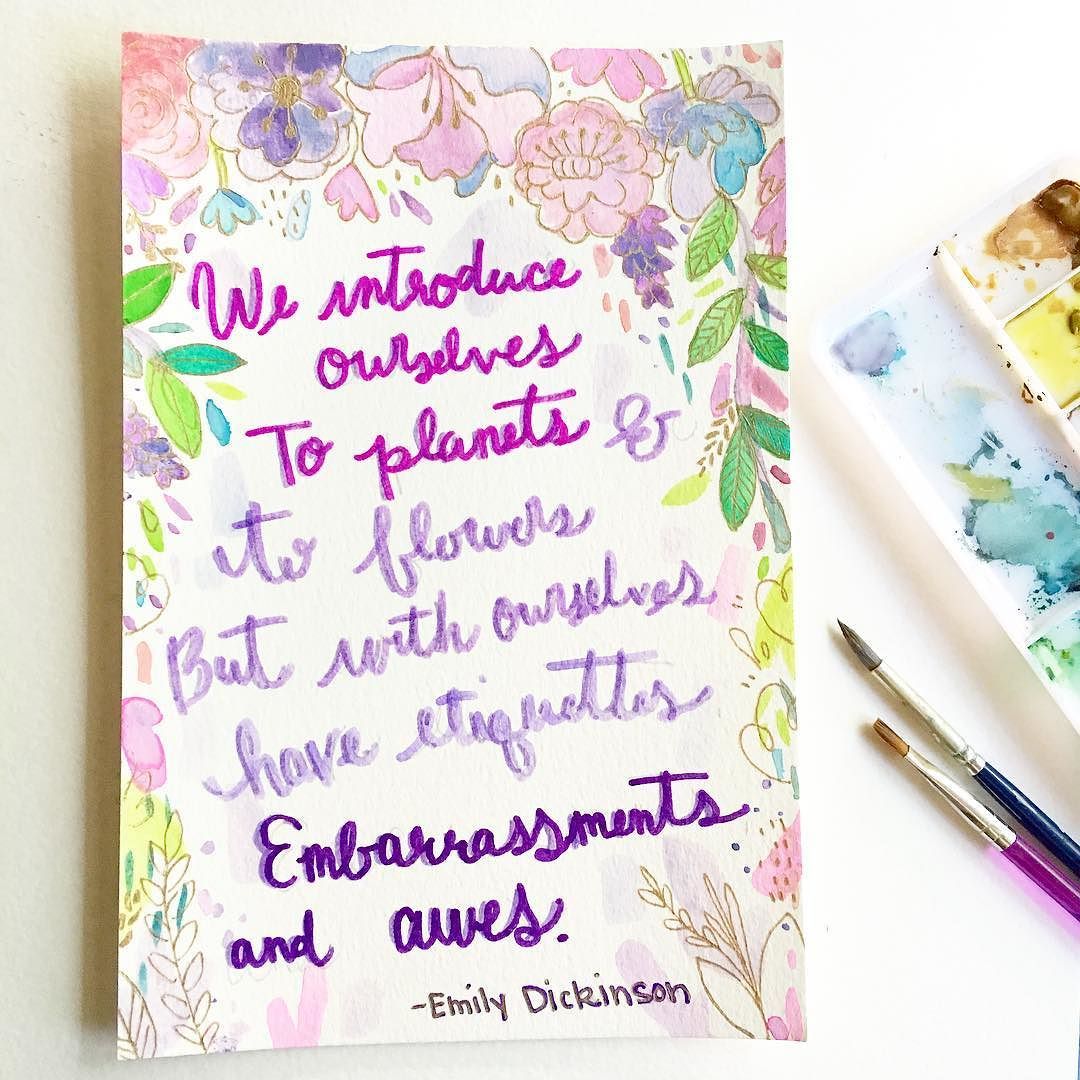 We introduce
ourselves
To planets &
to flowers
But with ourselves
have etiquettes
Embarrassments
and awes.
-Emily Dickinson